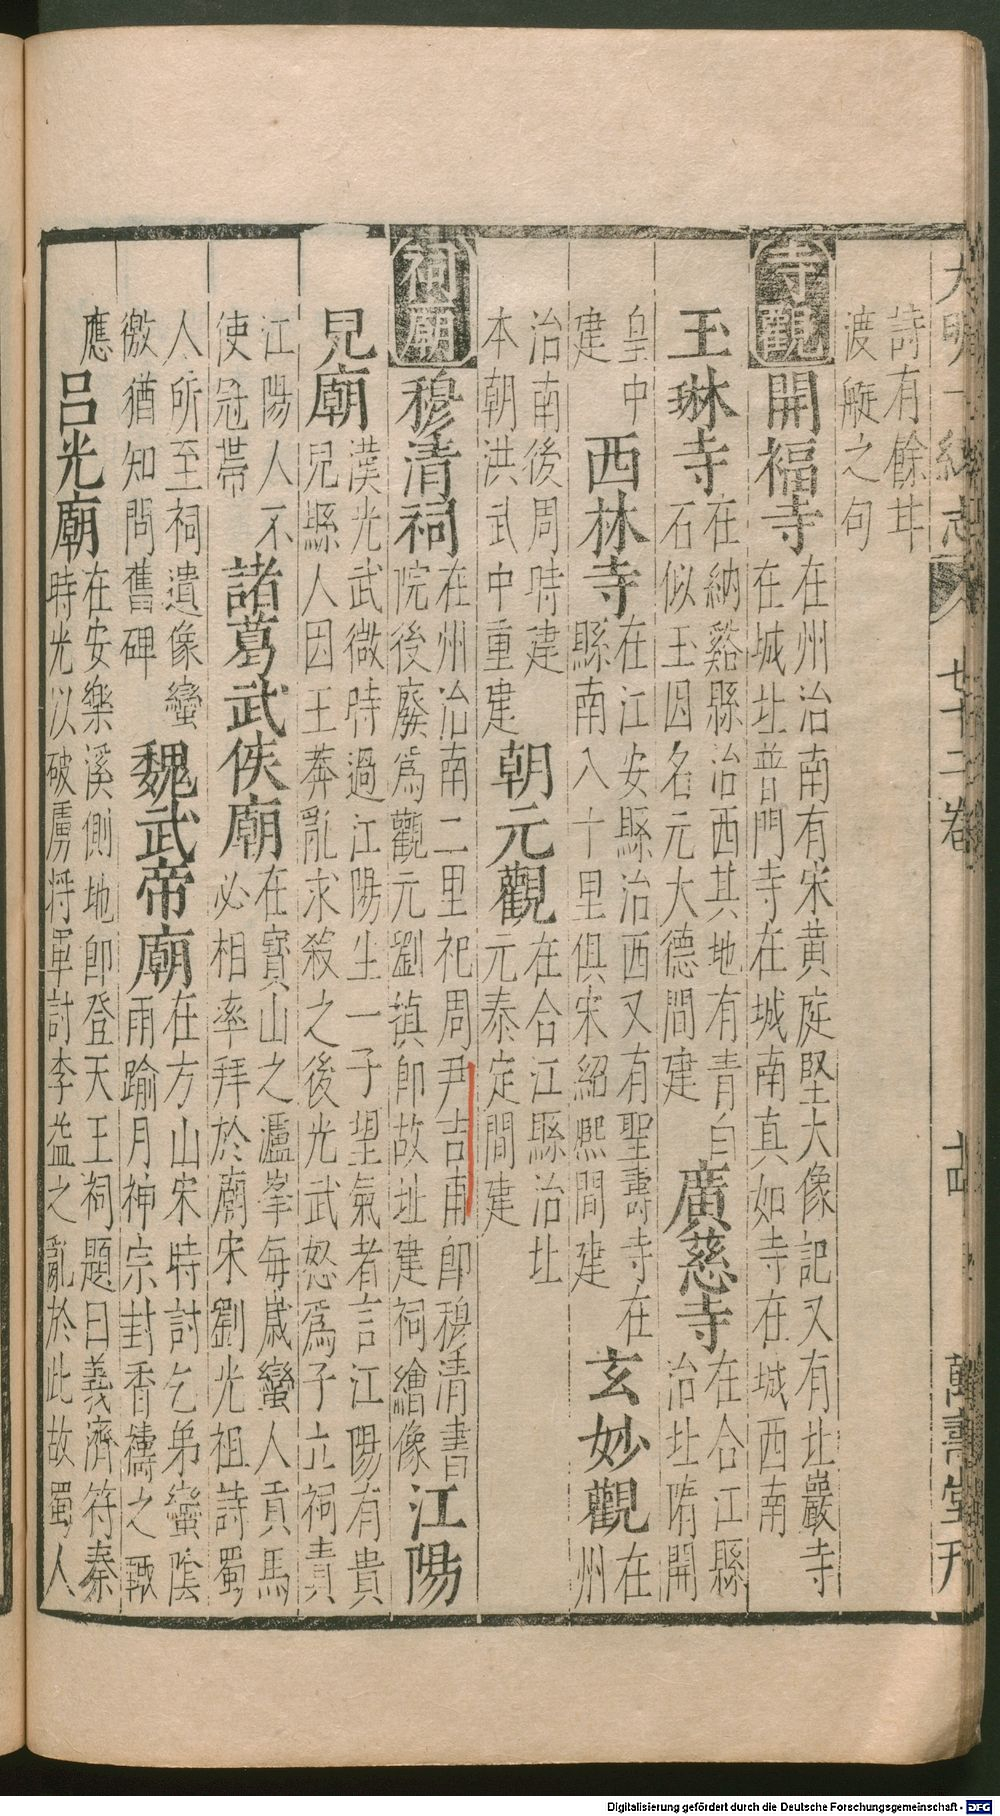 大明一統志 七十二卷 萬壽堂刊
詩有餘甘
渡艇之句
寺觀 開福寺 在州治南有宋黄庭堅大像記又有址巖寺
在城址普門寺在城南真如寺在城西南
玉琳寺 在納谿縣治西其地有青白
石似玉因名元大德間建
廣慈寺 在合江縣
治址隋開
皇中
建
西林寺 在江安縣治西又有聖壽寺在
縣南八十里俱宋紹熙間建
玄妙觀 在
州
治南後周時建
本朝洪武中重建
朝元觀 在合江縣治址
元泰定間建
祠廟 穆清祠 在州治南二里祀周尹吉甫即穆清書
院後廢為觀元劉禎即故址建祠繪像
江陽
兒廟 漢光武微時過江陽生一子望氣者言江陽有貴
兒縣人因王莽亂求殺之後光武怒爲子立祠責
江陽人不
使冠帶
諸葛武侯廟 在寳山之瀘峯每歳蠻人貢馬
必相率拜於廟宋劉光祖詩蜀
人所至祠遺像蠻
徼猶知問舊碑
魏武帝廟 在方山宋時討乞弟蠻陰
雨踰月神宗封香禱之輙
應
吕光廟 在安樂溪側地即登天王祠題曰義濟符秦
時光以破虜将軍討李益之亂於此故蜀人
Digitalisierung gefördert durch die Deutsche Forschungsgemeinschaft - DFG